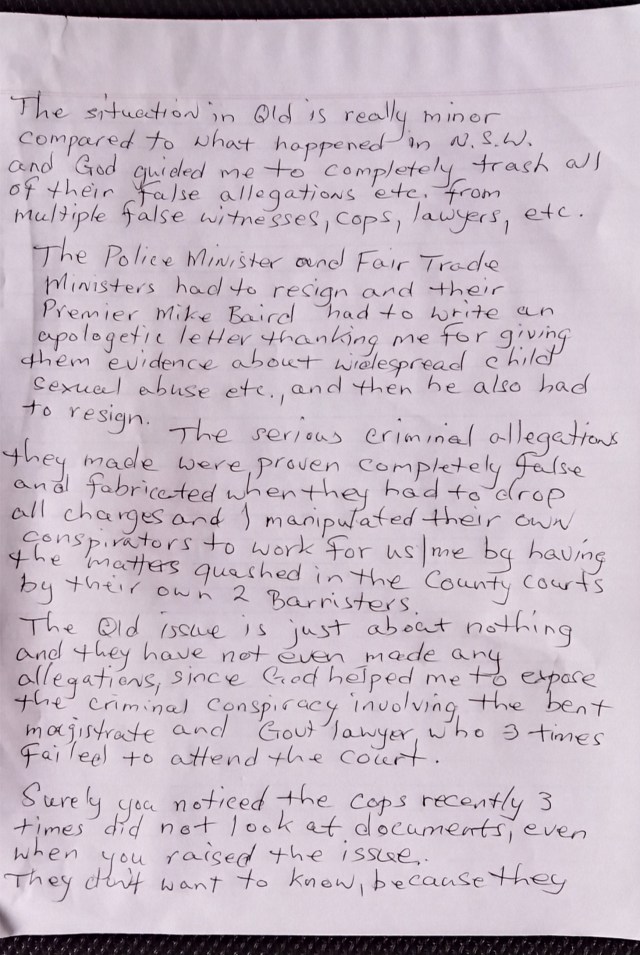 The situation in Qld is really minor
compared to what happened in N.S.W.
and God guided me to completely trash all
of their false allegations etc. from
multiple false witnesses, cops, lawyers, etc.
The Police Minister and Fair Trade
Ministers had to resign and their
Premier Mike Baird had to write an
apologetic letter thanking me for giving
them evidence about widespread child
sexual abuse etc., and then he also had
to resign. The serious criminal allegations
they made were proven completely false
and fabricated when they had to drop
all charges and I manipulated their own
conspirators to work for us/me by having
the matters quashed in the County courts
by their own 2 Barristers.
The Qld issue is just about nothing
and they have not even made any
allegations, since God helped me to expose
the criminal conspiracy involving the bent
magistrate and Govt lawyer, who 3 times
failed to attend the court.
Surely you noticed the cops recently 3
times did not look at documents, even
when you raised the issue.
They don't want to know, because they